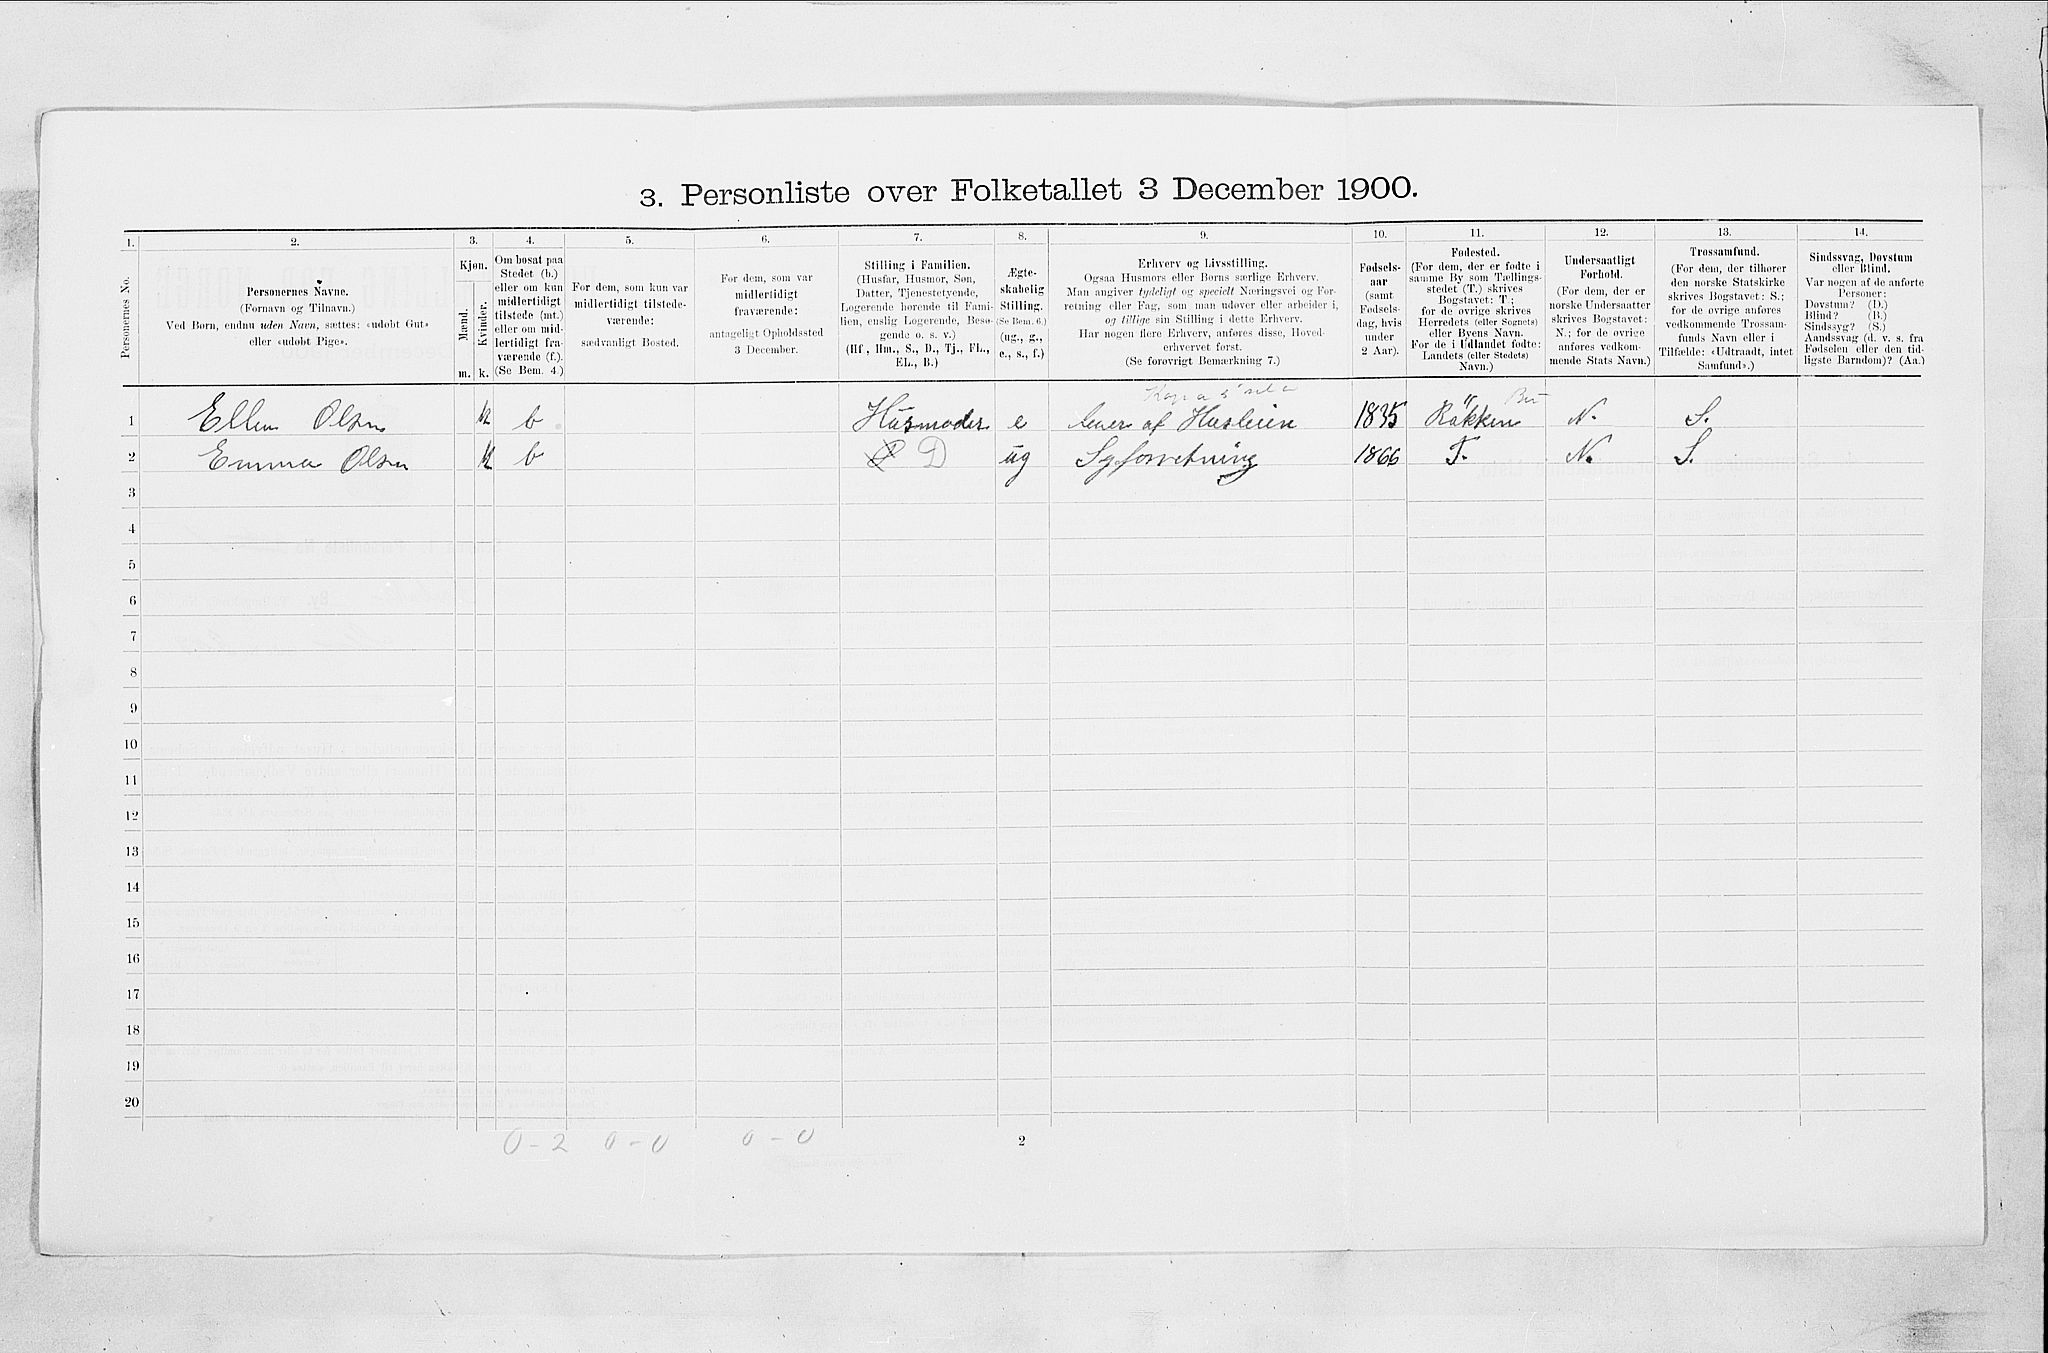 3. Personliste over Folketallet 3 December 1900.
1. 2. 3. 4. 5. 6. 7. 8. 9. 10. 11. 12. 13. 14.
Personernes No.
Personernes Navne.
(Fornavn og Tilnavn.)
Ved Børn, endnu uden Navn, sættes: «udøbt Gut»
eller «udøbt Pige».
Kjøn.
Mænd.
Kvinder.
m. k.
Om bosat paa
Stedet (b.)
eller om kun
midlertidigt
tilstede (mt.)
eller om mid-
lertidigt fra-
værende (f.).
(Se Bem. 4.)
For dem, som kun var
midlertidigt tilstede-
værende:
sædvanligt Bosted.
For dem, som var
midlertidigt
fraværende:
antageligt Opholdssted
3 December.
Stilling i Familien.
(Husfar, Husmor, Søn,
Datter, Tjenestetyende,
Logerende hørende til Fami-
lien, enslig Logerende, Besø-
gende o. s. v.)
(Hf., Hm., S., D., Tj., FL.,
EL., B.)
Ægte-
skabelig
Stilling.
(Se Bem. 6.)
(ug., g.,
e., s., f.)
Erhverv og Livsstilling.
Ogsaa Husmors eller Børns særlige Erhverv.
Man angiver tydeligt og specielt Næringsvei og For-
retning eller Fag, som man udøver eller arbeider i,
og tillige sin Stilling i dette Erhverv.
Har nogen flere Erhverv, anføres disse, Hoved-
erhvervet først.
(Se forøvrigt Bemærkning 7.)
Fødsels-
aar
(samt
Fødsels-
dag, hvis
under
2 Aar).
Fødested.
(For dem, der er fødte i
samme By som Tællings-
stedet (T.) skrives
Bogstavet: T.;
for de øvrige skrives
Herredets (eller Sognets)
eller Byens Navn.
For de i Udlandet fødte:
Landets (eller Stedets)
Navn.)
Undersaatligt
Forhold.
(For dem, der er
norske Undersaatter
skrives Bogstavet:
N.; for de øvrige
anføres vedkom-
mende Stats Navn.)
Trossamfund.
(For dem, der tilhører
den norske Statskirke
skrives Bogstavet: S.;
for de øvrige anføres
vedkommende Trossam-
funds Navn eller i
Tilfælde: «Udtraadt, intet
Samfund».)
Sindssvag, Døvstum
eller Blind.
Var nogen af de anførte
Personer:
Døvstum? (D.)
Blind? (B.)
Sindssyg? (S.)
Aandssvag (d. v. s. fra
Fødselen eller den tid-
ligste Barndom)? (Aa.)
1 Ellen Olsen k b Husmoder e lever af Husleien 1835 Røkken N. S.
2 Emma Olsen k b D ug Syforretning 1866 T. N. S.
3
4
5
6
7
8
9
10
11
12
13
14
15
16
17
18
19
20
0-2 0-0 0-0 2